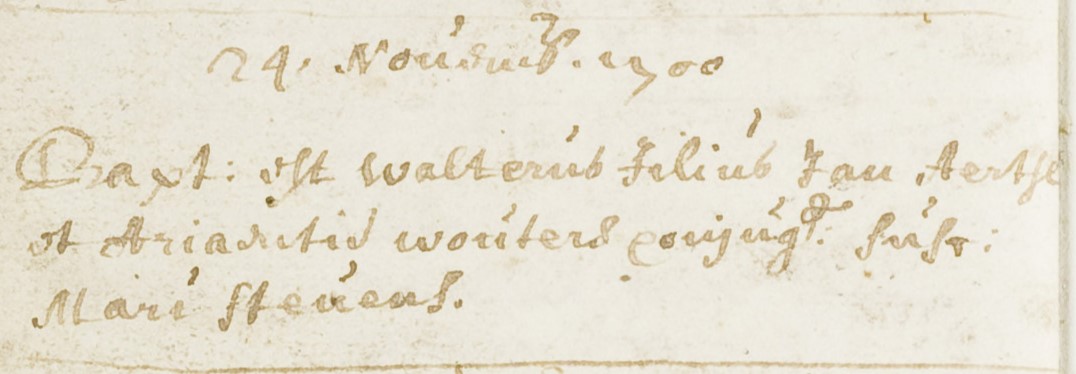 24. Novemb. 1700
Bapt: est walterus filius Jan Aertse
et Ariaentie wouters conjug: susc:
Mari stevens.